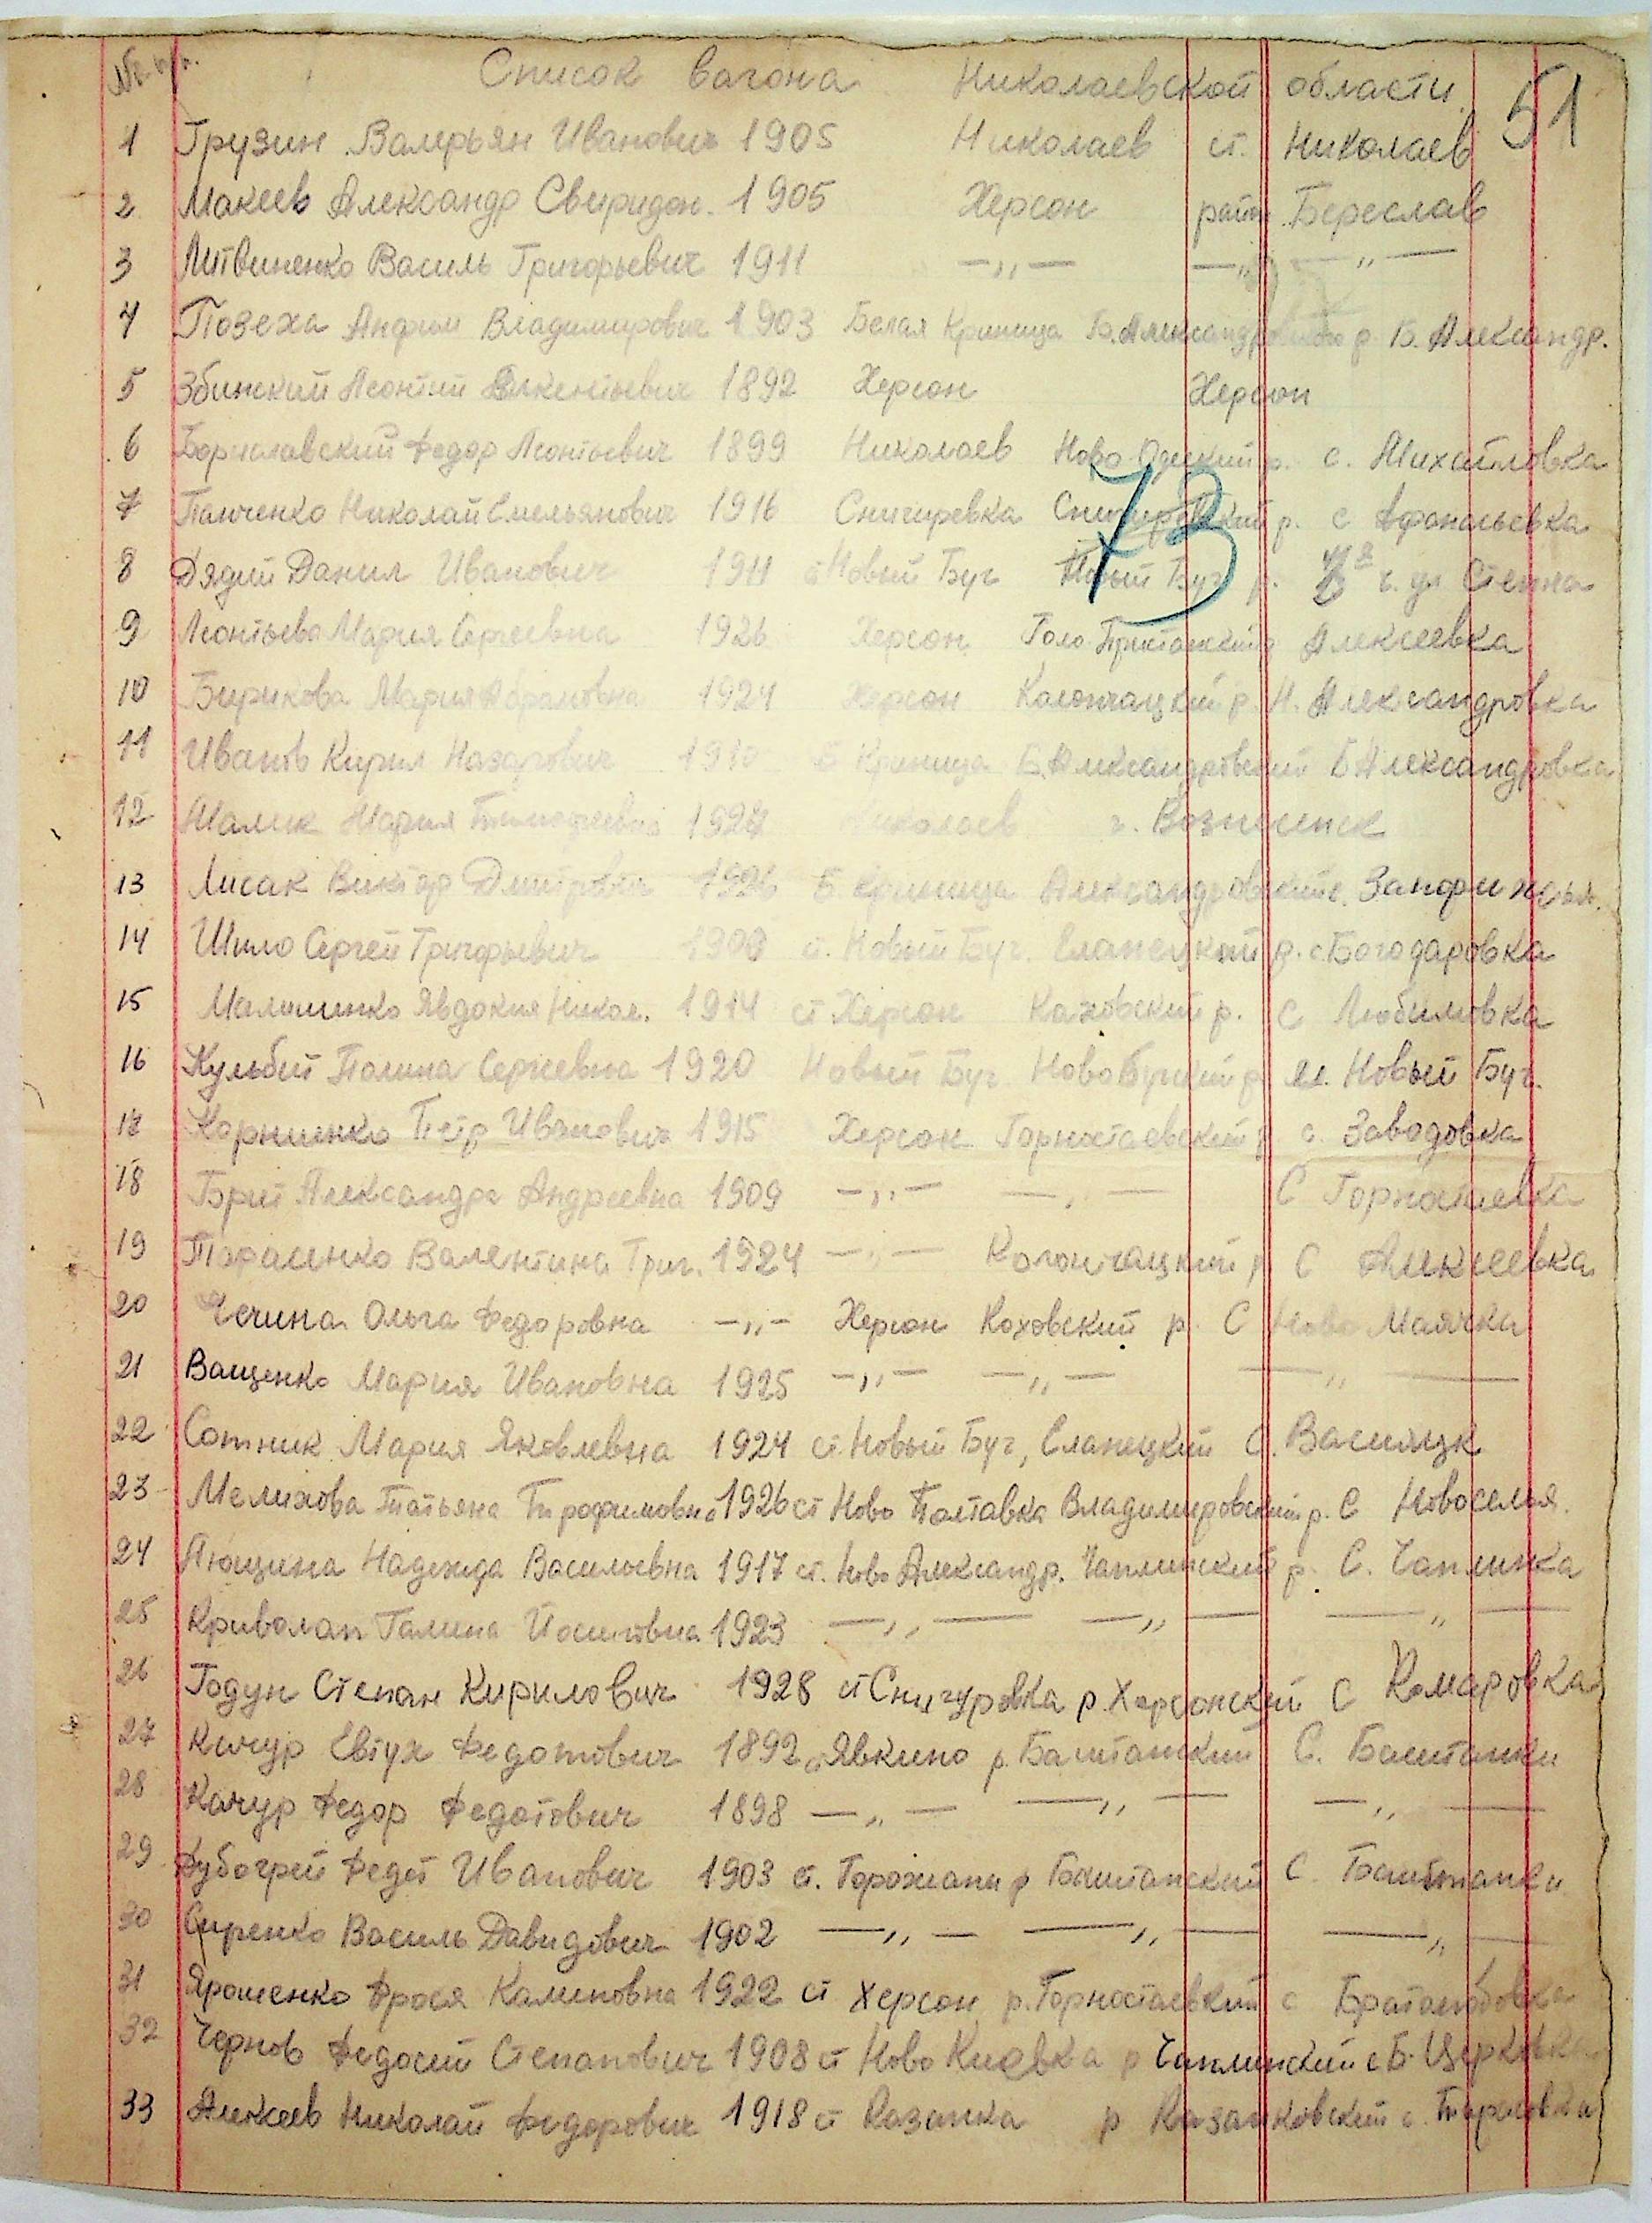 № п/п. Список вагона Николаевской области. 51
1 Грузин Валерьян Иванович 1905 Николаев ст. Николаев
2 Макеев Александр Свиридон. 1905 Херсон район Береслав
3 Литвиненко Василь Григорьевич 1911 —„— —„— —„—
4 Позеха Анфим Владимирович 1903 Белая Криница Б. Александровского р. Б. Александр.
5 Збинский Леонтий 1892 Херсон Херсон
6 Бориславский Федор Леонтьевич 1899 Николаев Ново Одеский р. с. Михайловка
73
7 Панченко Николай Емельянович 1916 Снигиревка Снигиревский р. с Афанасьевка
8 Дядий Данил Иванович 1911 ст Новый Буг Новый Буг р. ул Степна
9 Леонтьева Мария Сергеевна 1926 Херсон Голо Пристанский Алексеевка
10 Бирикова Мария Абрамовна 1924 Херсон Каланчацкий р. Н. Александровка
11 Иванов Кирил Назарович 1910 Б Криница Б. Александровский Б Александровка
12 Малик Мария Тимофеевна Николаев г. Вознисенск
13 Лисак Виктор Дмитрович 1926 Б. Криница Александровский с.
14 Шило Сергей Григорьевич 1909 ст. Новый Буг. Еланецкий р. с. Богодаровка
15 Явдокия Никол. 1914 ст Херсон Каховский р. с Любимовка
16 Кульбий Полина Сергеевна 1920 Новый Буг Ново Бугский р. м. Новый Буг.
17 Корниенко Петр Иванович 1915 Херсон Горностаевский р с. Заводовка
18 Александра Андреевна 1909 —„— —„— С Горностаевка
19 Тарасенко Валентина Григ. 1924 —„— Каланчацкий р С Алексеевка
20 Чечина Ольга Федоровна —„— Херсон Коховский р. С Ново Маячка
21 Ващенко Мария Ивановна 1925 —„— —„— —„—
22 Сотник Мария Яковлевна 1924 ст. Новый Буг, Еланецкий С.
23 Мелихова Татьяна Трофимовна 1926 ст Ново Полтавка Владимировский р. С Новоселья.
24 Надежда Васильевна 1917 ст. Ново Александр. Чаплинский р. С. Чаплинка
25 Криволап Галина Йосиповна 1923 —„— —„— —„—
26 Годун Степан Кирилович 1928 ст Снигуровка р. Херсонский С Комаровка
27 Качур Евтух Федотович 1892 ст Явкино р. Баштанкий С. Баштанки
28 Качур Федор Федотович 1898 —„— —„— —„—
29 Дубогрей Федот Иванович 1903 ст. Горожани р Баштанский С. Баштанки
30 Сиренко Василь Давидович 1902 —„— —„— —„—
31 Ярошенко Фрося Калиновна 1922 ст Херсон р. Горностаевкий с Братолюбовка
32 Чернов Федосий Степанович 1908 ст Ново Киевка р Чаплинский с Б.
33 Алексеев Николай Федорович 1918 ст Казанка р Казанковский с.